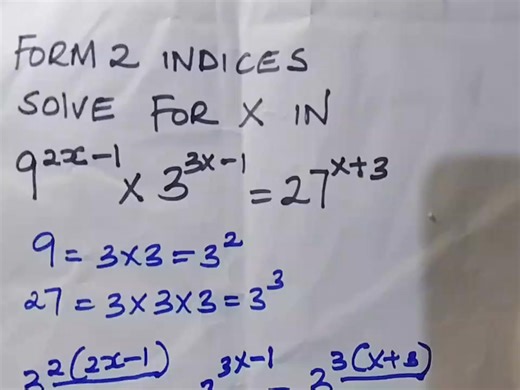 FORM 2 INDICES
SOLVE FOR X IN
9^{2x-1} × 3^{3x-1} = 27^{x+3}
9 = 3×3 = 3^2
27 = 3×3×3 = 3^3
3^{2(2x-1)} 3^{3x-1} = 3^{3(x+3)}